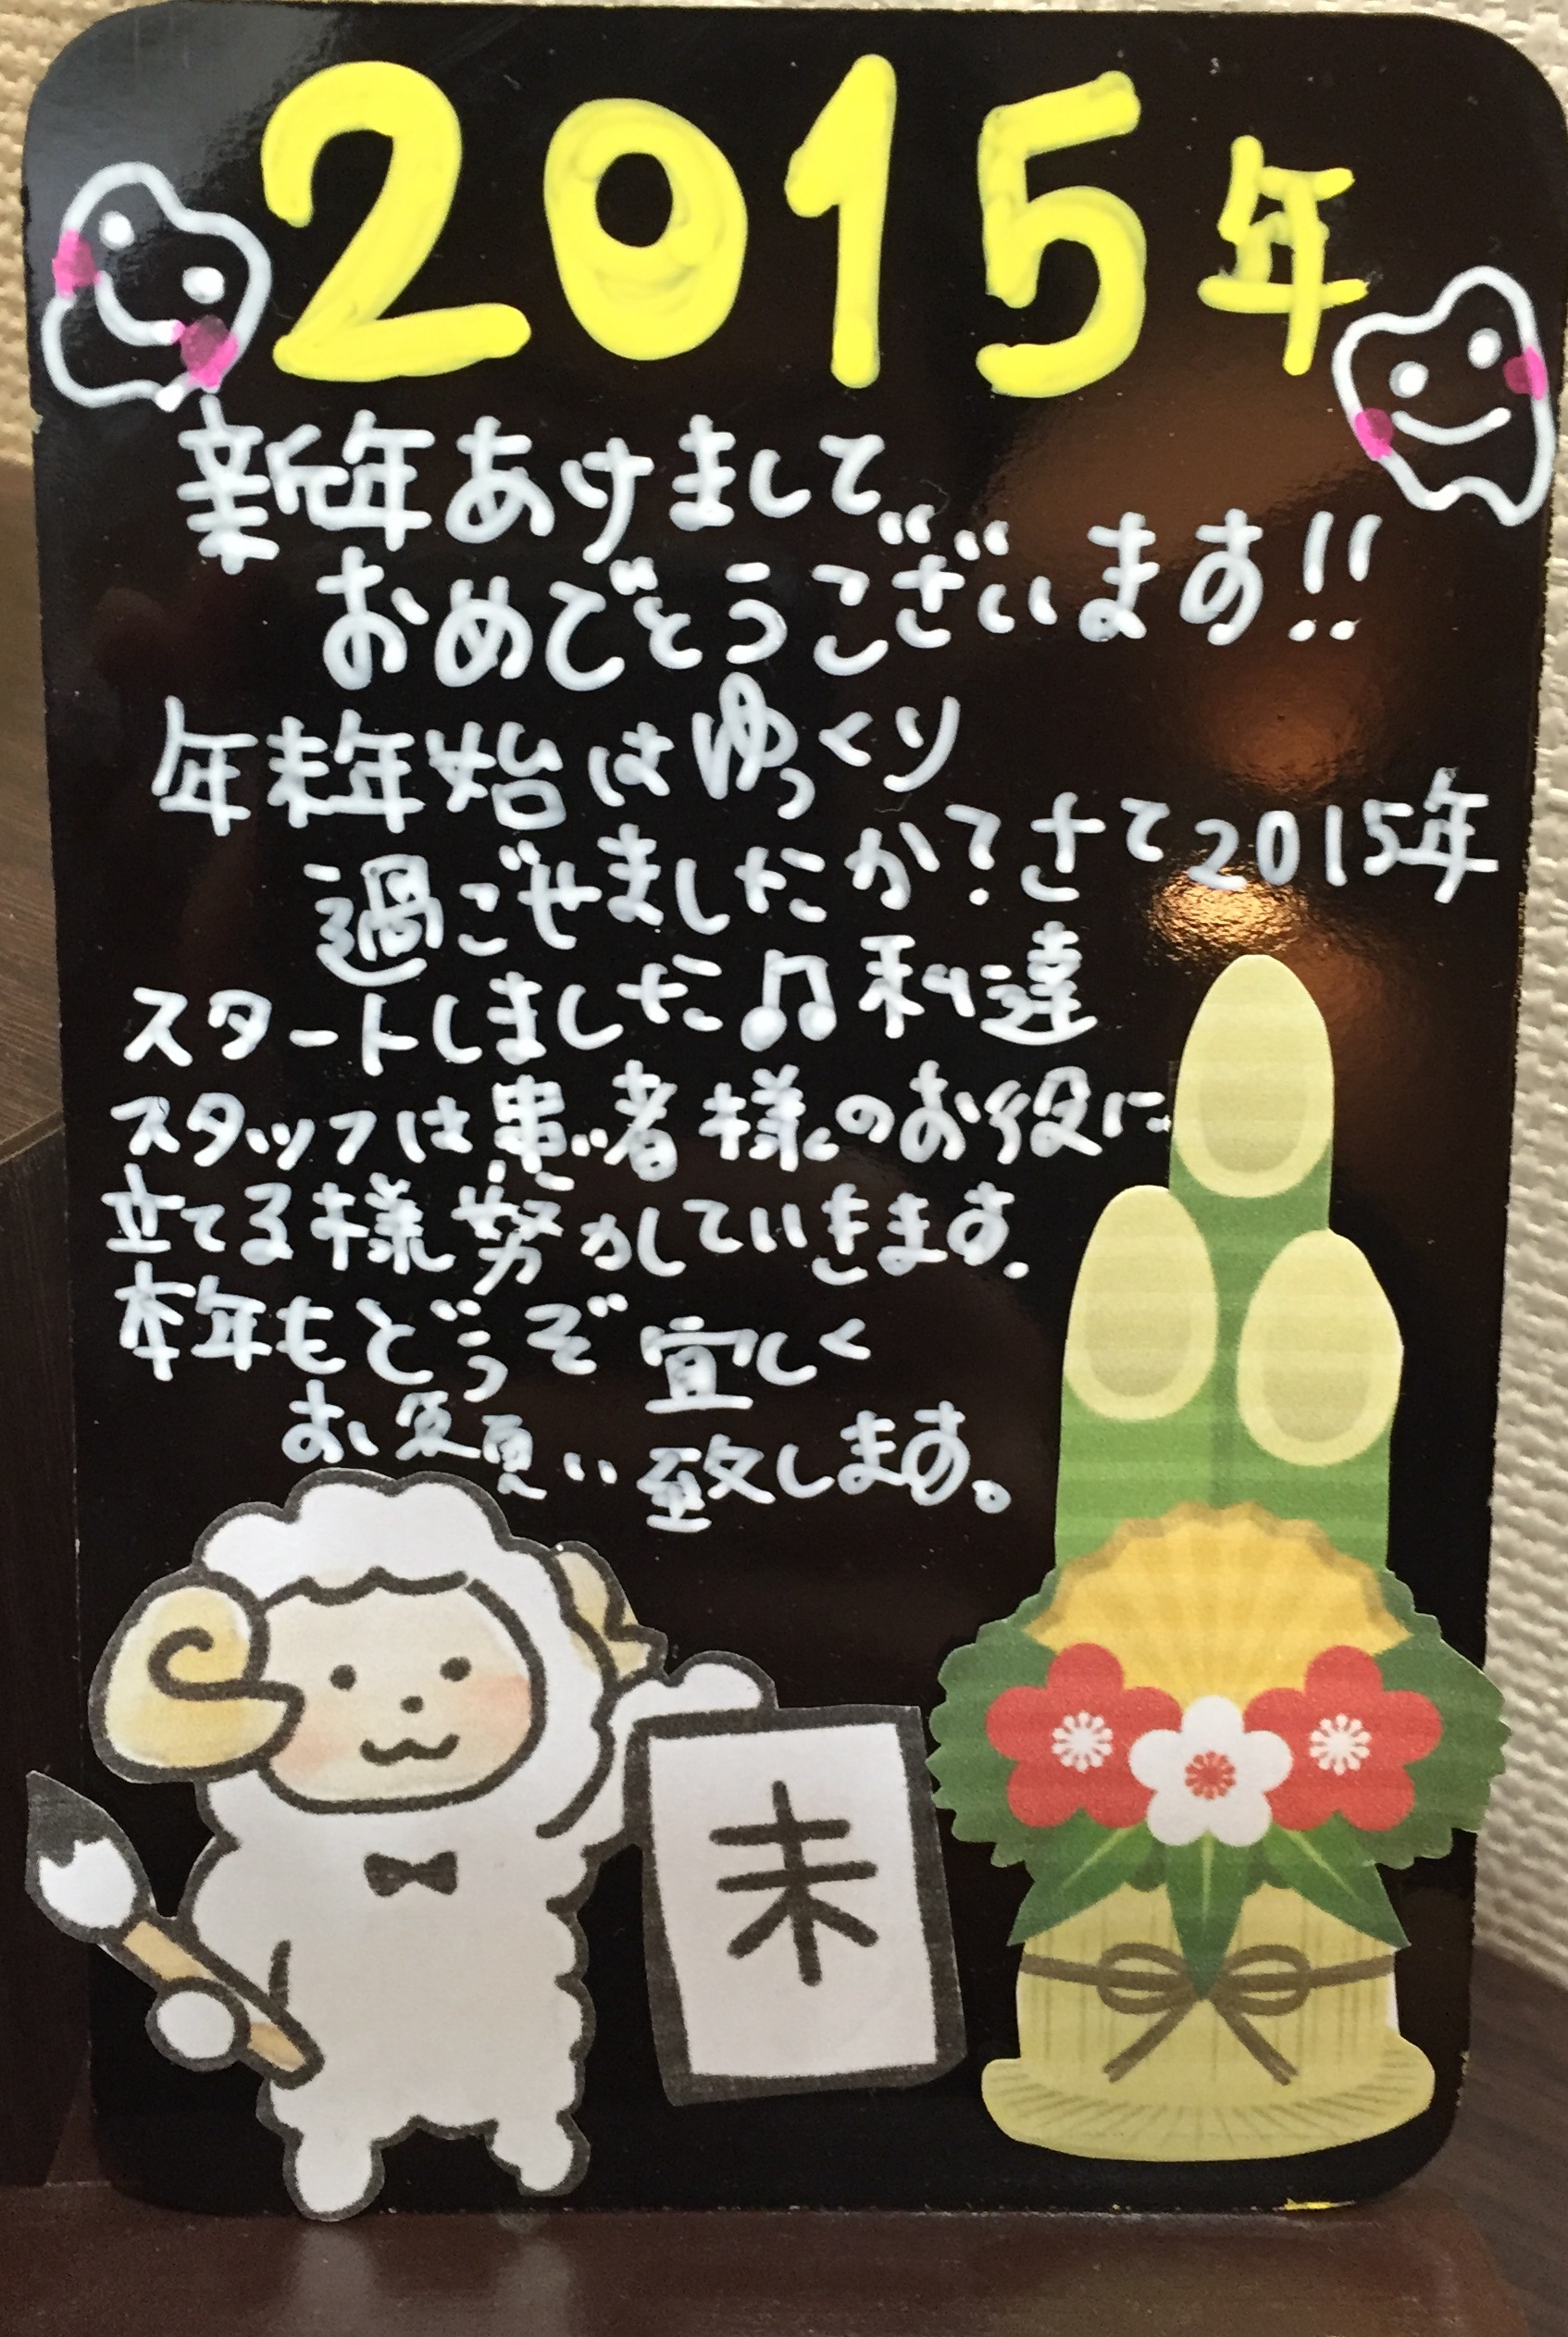 2015年
新年あけまして
おめでとうございます!!
年末年始はゆっくり
過ごせましたか?さて2015年
スタートしました♫私達
スタッフは患者様のお役に
立てる様努力していきます.
本年もどうぞ宜しく
お願い致します。
未